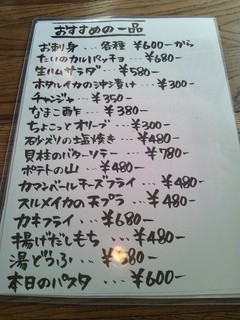 おすすめの一品
お刺身...各種 ¥600-から
たいのカルパッチョ...¥680-
生ハムサラダ...¥580-
ホタルイカの沖漬け...¥300-
チャンジャ...¥350-
なまこ酢...¥380-
ちょこっとオリーブ...¥300-
砂ズリの塩焼き...¥480-
貝柱のバターソテー...¥780-
ポテトの山...¥480-
カマンベールチーズフライ...¥480-
スルメイカの天プラ...¥480-
カキフライ...¥680-
揚げだしもち...¥480-
湯どうふ...
本日のパスタ...¥600-